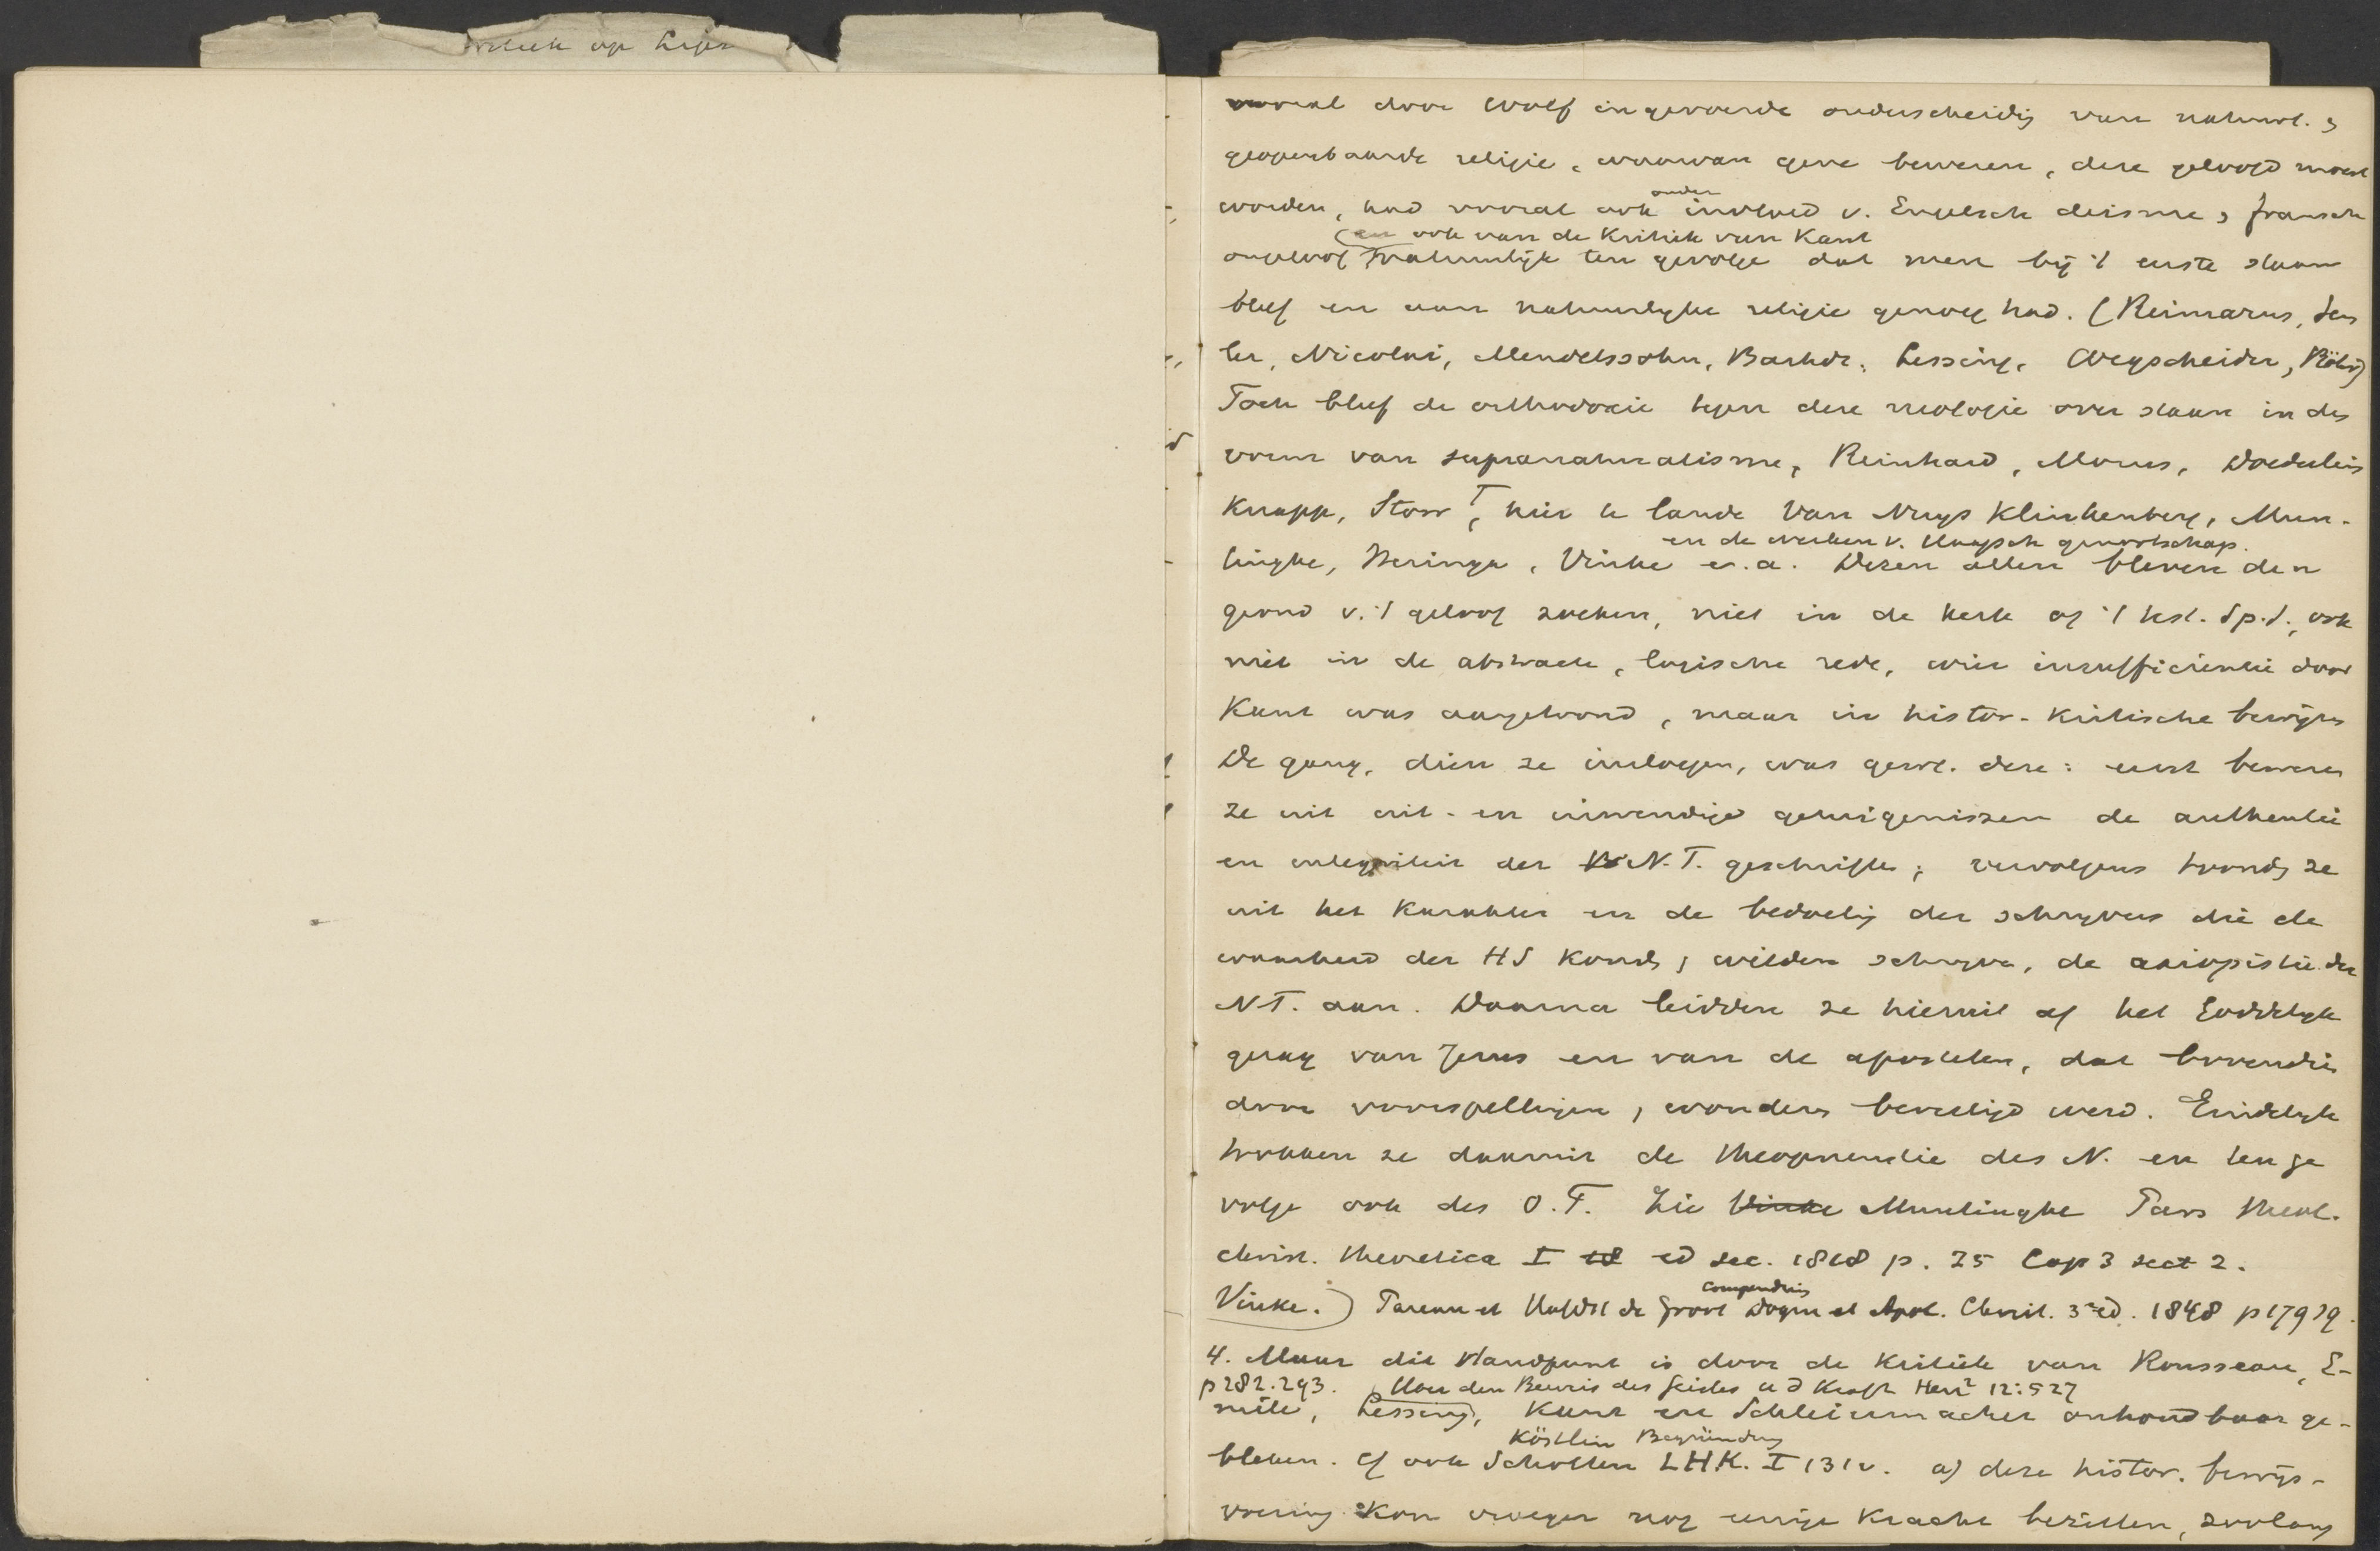 vooral door Wolf ingevoerde onderscheidig van natuurl. &
geopenbaarde religie, waarvan gene bewezen, deze geloofd moest
worden, had vooral ook onder invloed v. Engelsch deisme, fransch
en ook van de Kritiek van Kant
ongeloof natuurlijk ten gevolge dat men bij 't eerste staan
bleef en aan natuurlyke religie genoeg had. (Reimarus, Sem
ler, Nicolai, Mendelssohn, Bahrdt, Lessing, Wegscheider, Röhr)
Toch bleef de orthodoxie tegen deze neologie over staan in den
vorm van supranaturalisme, Reinhard, Morus, Doederlein
Knapp, Storr, hier te lande Van Nuys Klinkenberg, Mun-
en de werken v. Haagsch genootschap.
tinghe, Heringa, Vinke e.a. Dezen allen bleven den
grond v. 't geloof zoeken, niet in de kerk of 't test. Sp.S., ook
niet in de abstracte, logische rede, wier insufficientie door
Kant was aangetoond, maar in histor-kritische bewijzen
De gang, dien ze insloegen, was gew. deze: eerst bewezen
ze uit uit- en inwendige getuigenissen de authentie
en integriteit der N.T. geschriften; vervolgens toonden ze
uit het karakter en de bedoelig der schryvers die de
waarheid der HS konden, wilden schryven, de axiopistie der
N.T. aan. Daarna leidden ze hieruit af het Goddelyk
gezag van Jezus en van de apostelen, dat bovendien
door voorspellingen, wonderen bevestigd werd. Eindelyk
trokken ze daaruit de theopneustie des N. en ten ge
volge ook des O.T. Zie Vinke Muntinghe Pars theol.
christ. theoretica I ed sec. 1818 p. 25 Cap 3 sect 2.
Compendium
Vinke.) Pareau et Hofst de Groot Dogm et Apol. Christ. 3a ed. 1848 p 179 sq.
4. Maar dit standpunt is door de kritiek van Rousseau, E-
p 282.293. Ueber den Beweis des Geistes u d Kraft Herz2 12:527
mile, Lessing, Kant en Schleiermacher onhoudbaar ge-
Köstlin Begründung
bleken. Cf ook Scholten LHK. I 131v. a) deze histor. bewijs-
voering kon vroeger nog eenige kracht bezitten, zoolang